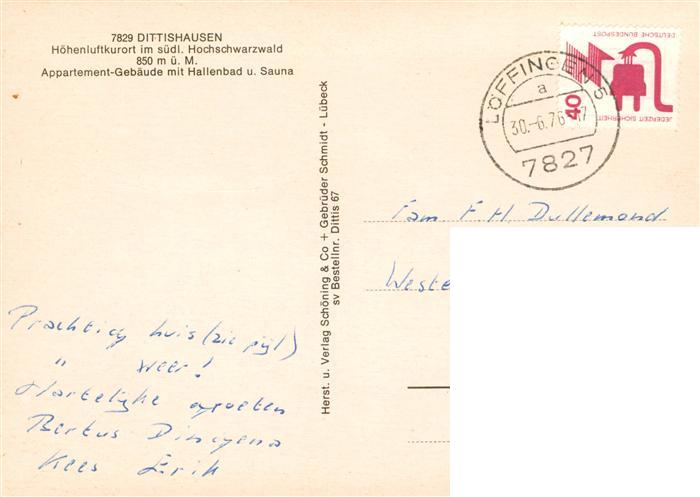 7829 DITTISHAUSEN
Höhenluftkurort im südl. Hochschwarzwald
850 m ü. M.
Appartement-Gebäude mit Hallenbad u. Sauna
DEUTSCHE BUNDESPOST
JEDERZEIT SICHERHEIT
40
LÖFFINGEN 5
a
30.-6.76-17
7827
Herst. u. Verlag Schöning & Co + Gebrüder Schmidt - Lübeck
sv Bestellnr. Dittis 67
Fam F.H. Dullemond
Weste
Prachtig huis (zie pijl)
" weer!
Hartelijke groeten
Bertus Dingena
Kees Erik